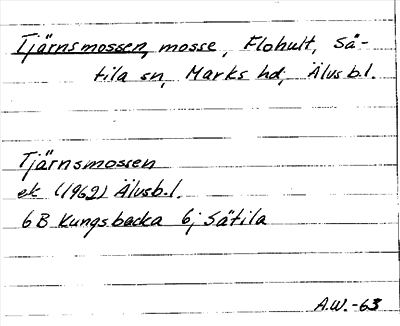 Tjärnsmossen, mosse, Flohult, Sä-
tila sn, Marks hd, Älvs b.l.
Tjärnsmossen
ek (1962) Älvsb.l.
6B Kungsbacka 6j Sätila
A.W.-63